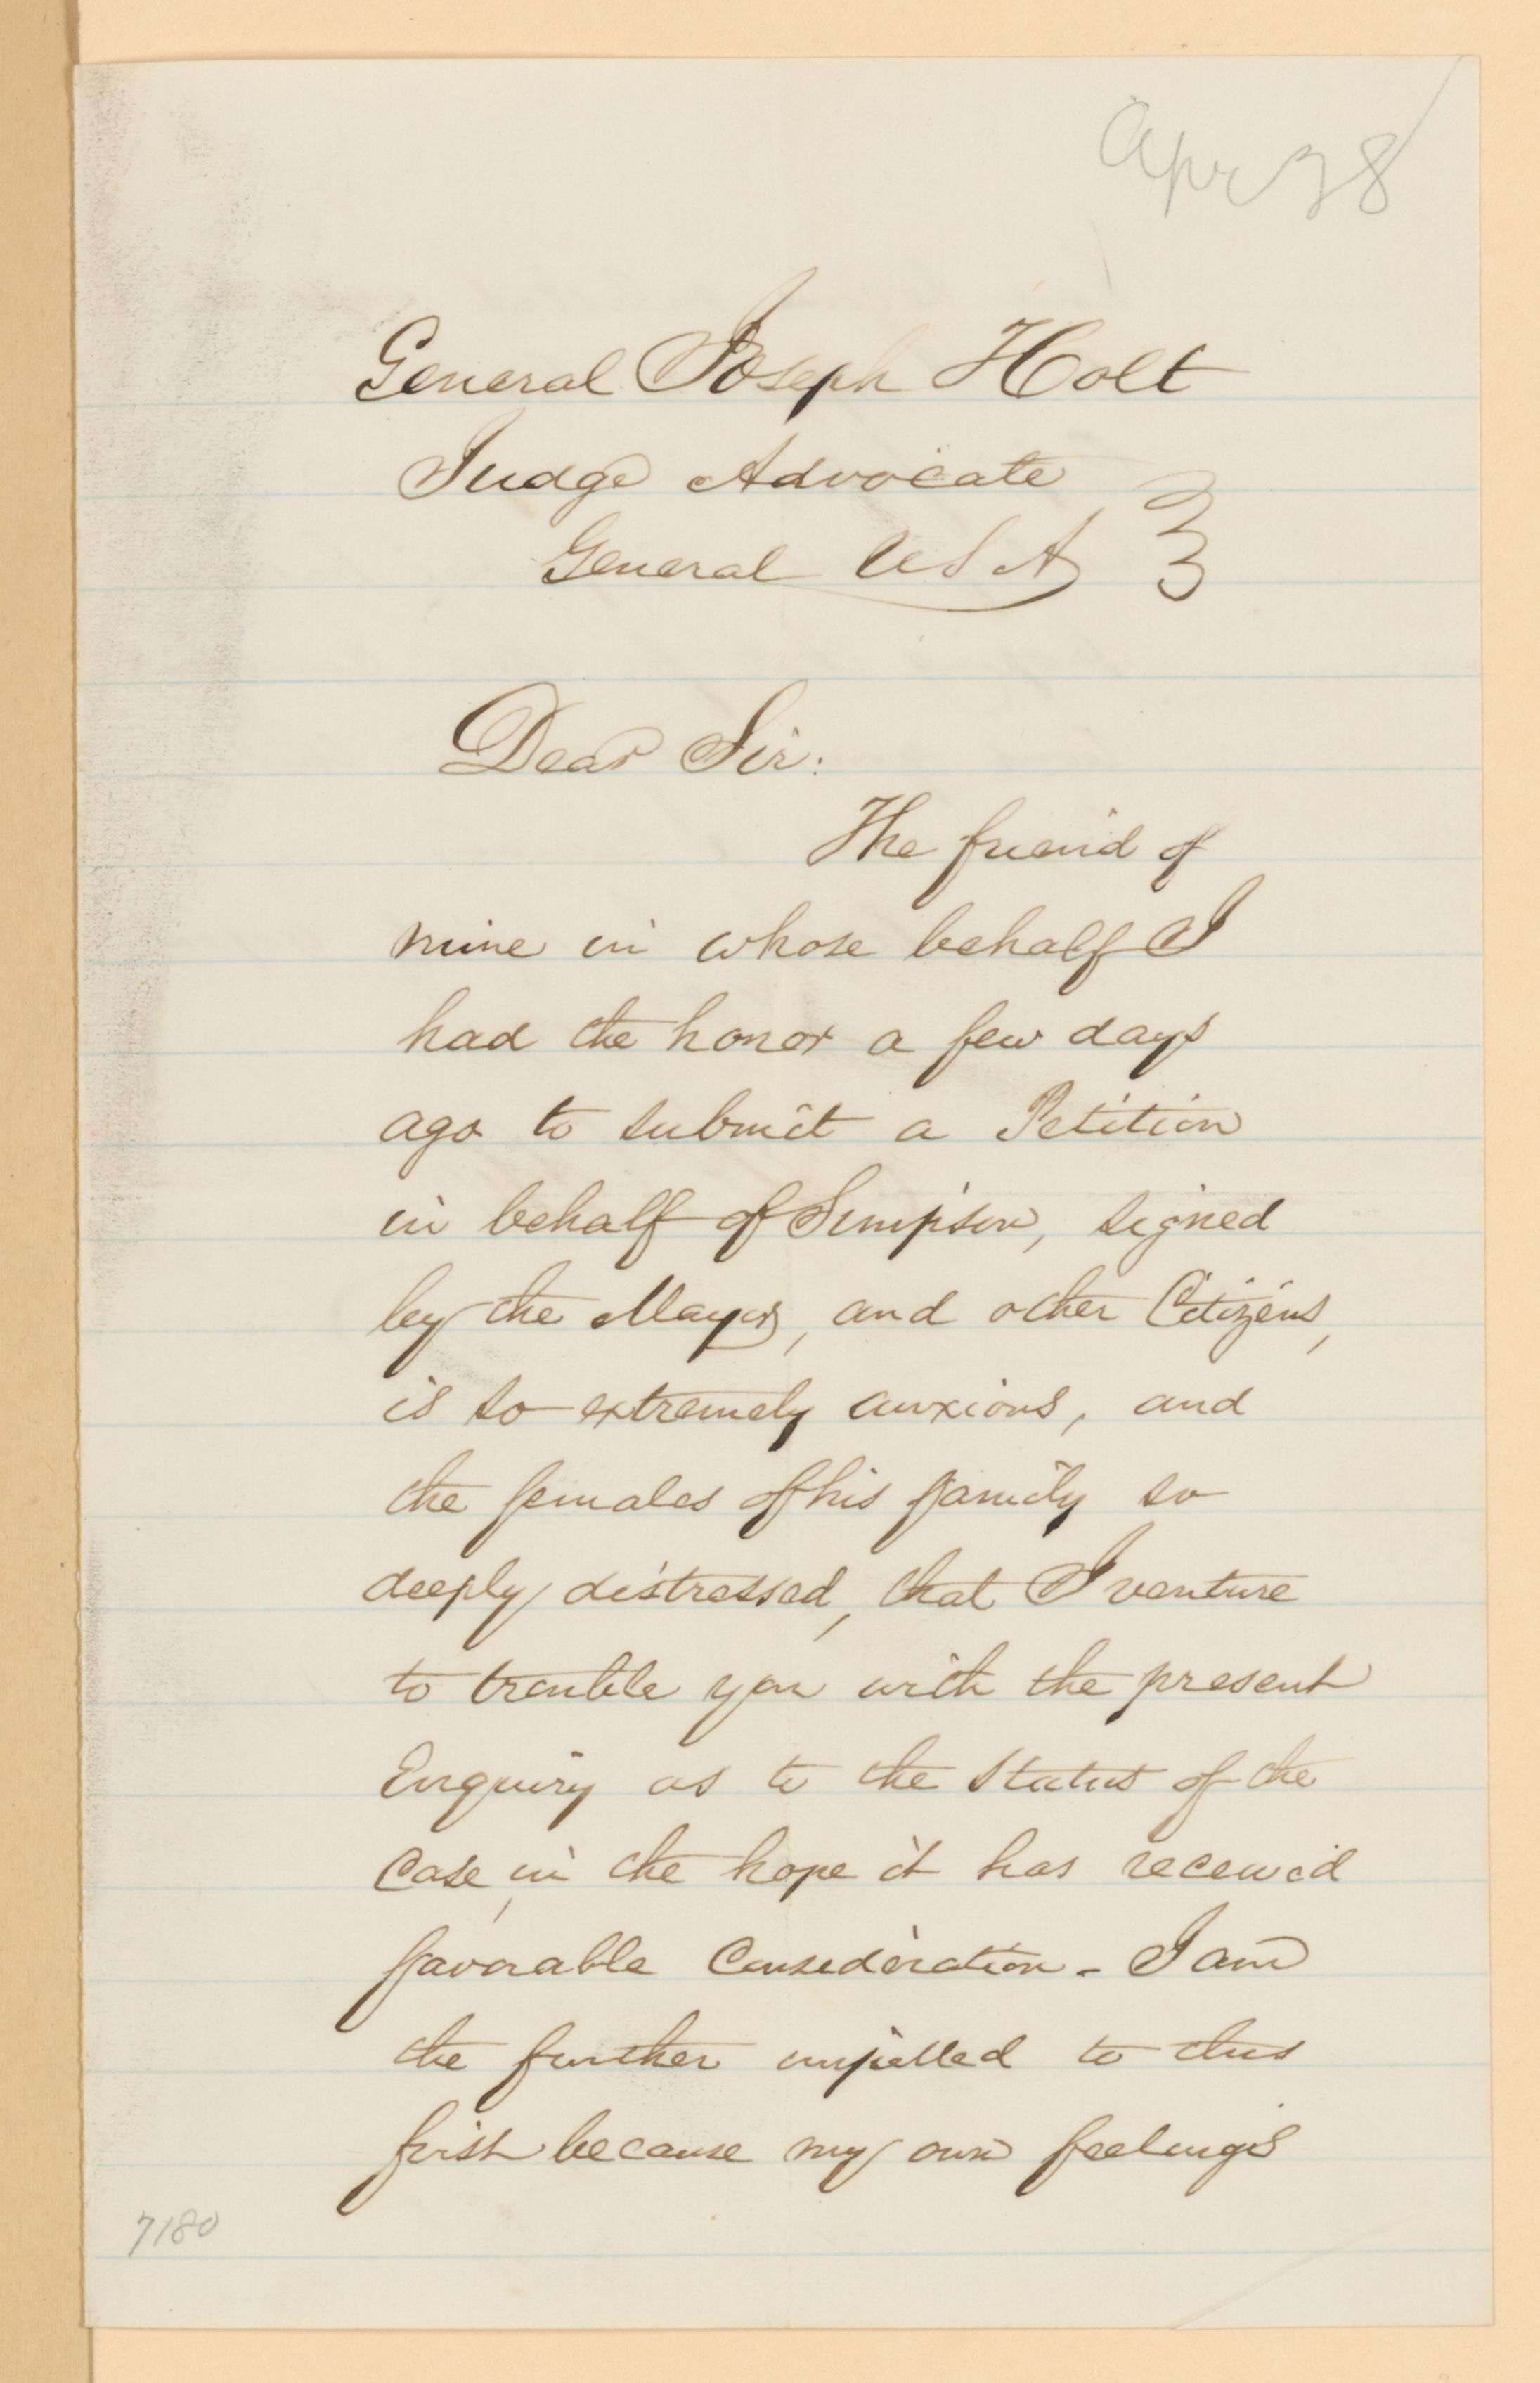 Apr 28
General Joseph Holt
Judge Advocate
General U S A
Dear Sir:
The friend of
mine in whose behalf I
had the honor a few days
ago to submit a Petition
in behalf of Simpson, signed
by the Mayor, and other Citizens,
is so extremely anxious, and
the females of his family so
deeply distressed, that I venture
to trouble you with the present
Enquiry as to the Status of the
Case, in the hope it has received
favorable Consideration - I am
the further impelled to this
first because my own feelings
7180